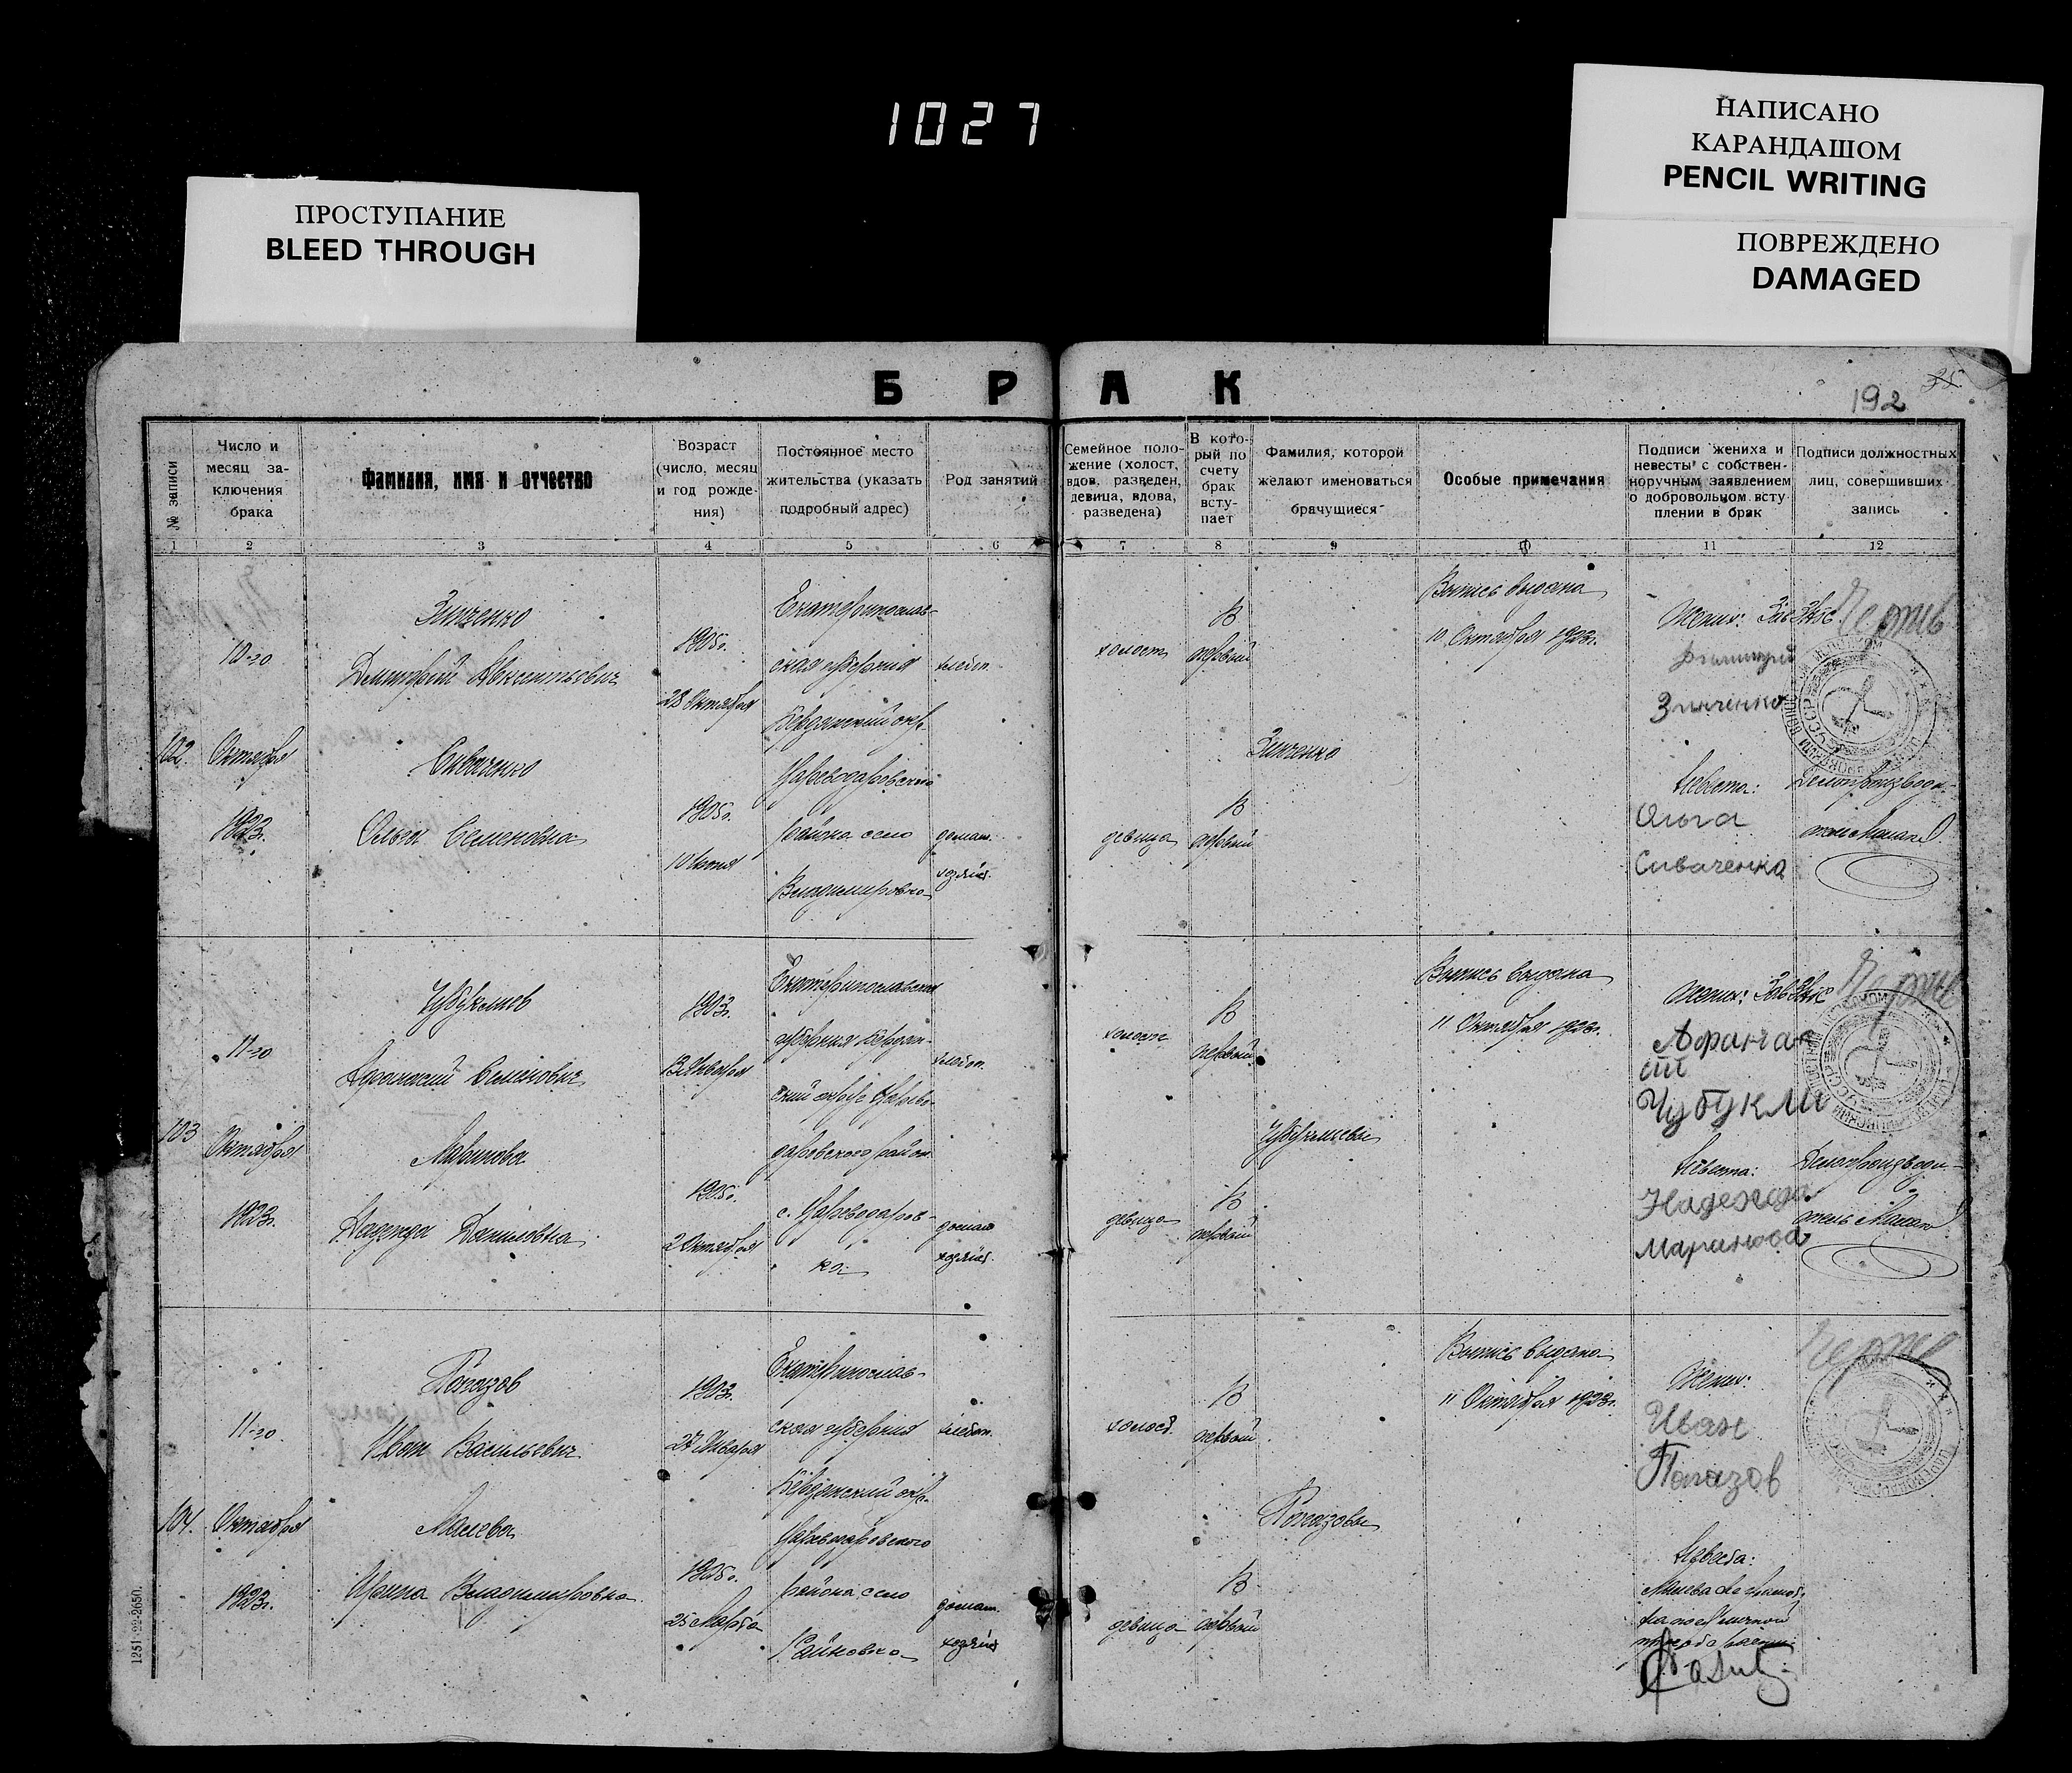 1027
НАПИСАНО
КАРАНДАШОМ
PENCIL WRITING
ПОВРЕЖДЕНО
DAMAGED
ПРОСТУПАНИЕ
BLEED THROUGH
БРАК
192
35
№ записи
Число и
месяц за-
ключения
брака
Фамилия, имя и отчество
Возраст
(число, месяц
и год рожде-
ния)
Постоянное место
жительства (указать
подробный адрес)
Род занятий
Семейное поло-
жение (холост,
вдов, разведен,
девица, вдова,
разведена)
В кото-
рый по
счету
брак
всту-
пает
Фамилия, которой
желают именоваться
брачущиеся
Особые примечания
Подписи жениха и
невесты с собствен-
норучным заявлением
о добровольном всту-
плении в брак
Подписи должностных
лиц, совершивших
запись
1 2 3 4 5 6 7 8 9 10 11 12
102.
10-го
Октября
1923г.
Зинченко
Димитрий Авксентьевич
Сиваченко
Ольга Семеновна
1905г.
28 Октября
1905г.
10 Июня
Екатеринослав-
ская губерния
Бердянский окр.
Цареводаровского
района село
Владимировка
хлебоп.
домаш.
хозяйс.
холост
девица
В
первый
В
первый
Зинченко
Выпись выдана
10 Октября 1923г.
Жених:
Димитрий
Зинченко
Невеста:
Ольга
Сиваченко
Зав Загс
Делопроизводи-
103
11-го
Октября
1923г.
Чубуклиев
Афанасий Семенович
Маринова
Надежда Даниловна
1903г.
13 Января
1905г.
2 Октября
Екатеринославская
губерния Бердян-
ский округ Царево-
даровского район
с. Цареводаров-
ка
хлебоп.
домаш
хозяйс.
холост
девица
В
первый
В
первый
Чубуклиевы
Выпись выдана
11 Октября 1923г.
Жених:
Афанаси
Чубукли
Невеста:
Надежда
Маринова
Зав Загс
Делопроизводи-
тель
104.
11-го
Октября
1923г.
Погазов
Иван Васильевич
Милева
Ирина Владимировна
1903г.
27 Января
1905г.
25 Марта
Екатеринослав-
ская губерния
Бердянский окр.
Цареводаровского
района село
Райновка
хлебоп.
домаш.
хозяйс
холост
девица
В
первый
В
первый
Погазовы
Выпись выдана
11 Октября 1923г.
Жених:
Иван
Погазов
Невеста:
1251-22-2650.